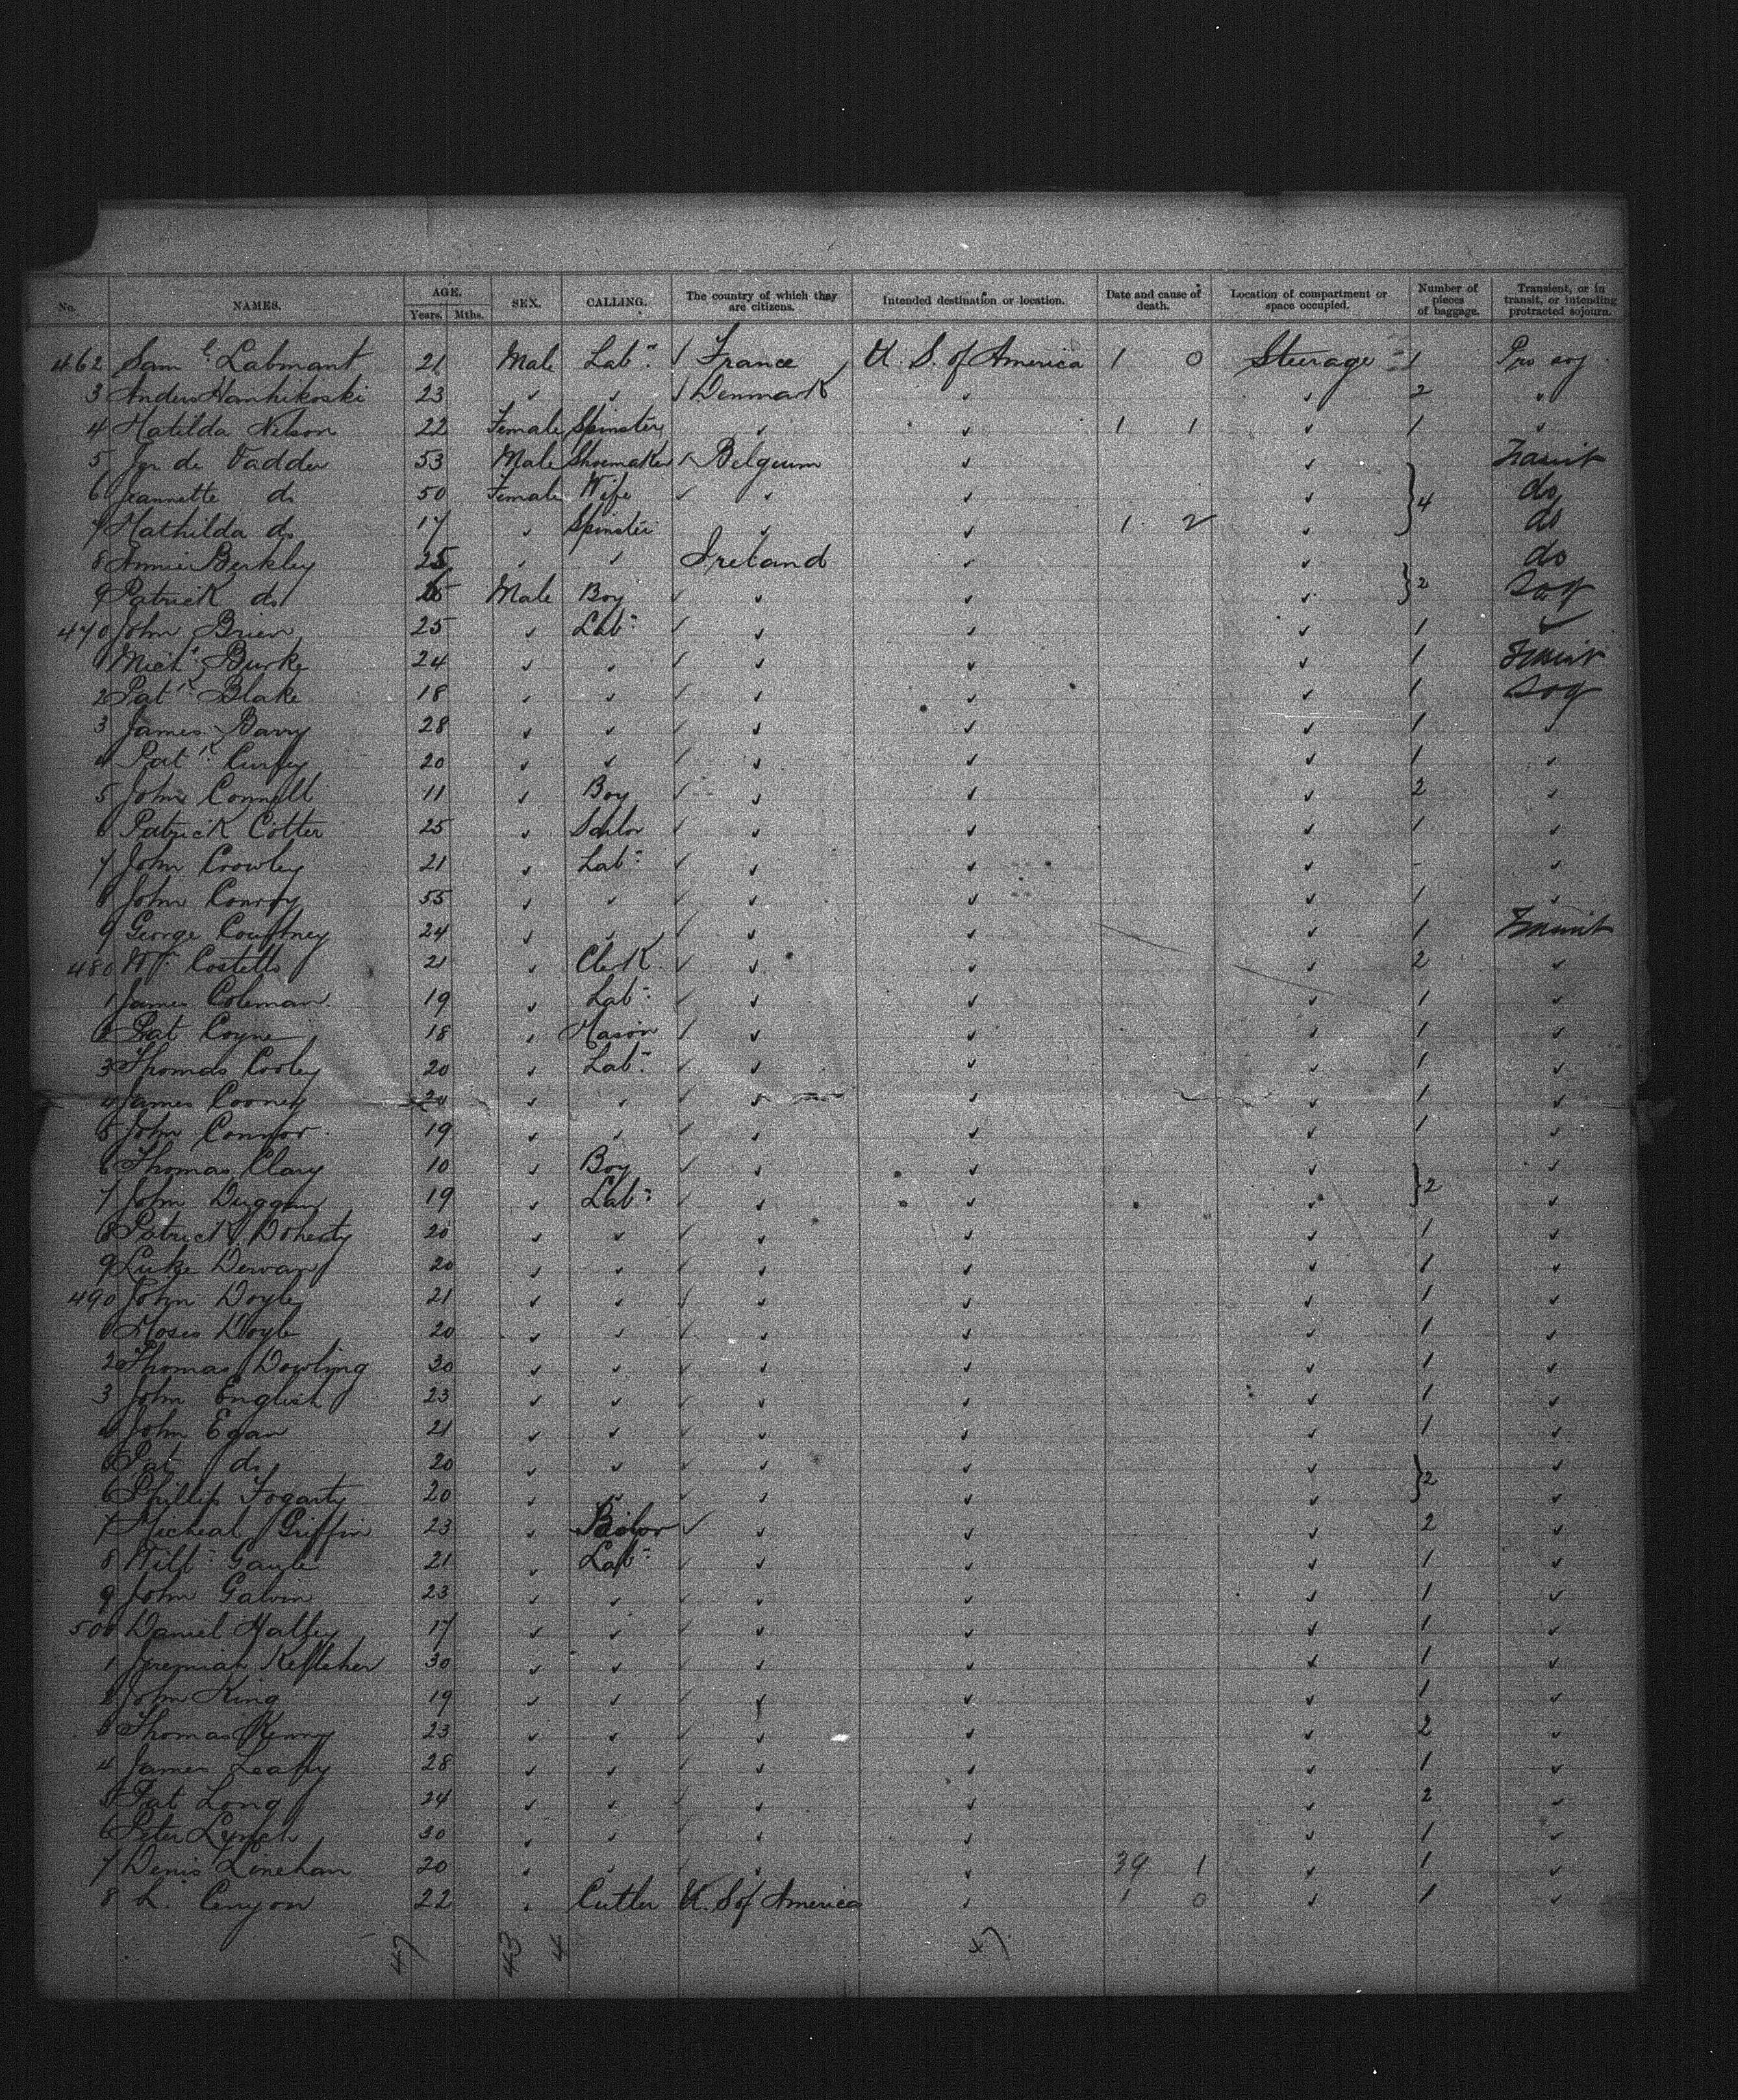 No. NAMES. AGE. Years. Mths. SEX. CALLING. The country of which they are citizens. Intended destination or location. Date and cause of death. Location of compartment or space occupied. Number of pieces of baggage. Transient, or in transit, or intending protracted sojourn.
462 Saml. Labmant 21 Male Labr. ✓ France U. S. of America 1 0 Steerage 1 Pro soj.
3 Anders Hanhikoski 23 ✓ ✓ ✓ Denmark ✓ ✓ 2 "
4 Matilda Nelson 22 Female Spinster ✓ ✓ 1 1 ✓ 1 ✓
5 de Vadder 53 Male Shoemaker Belgium ✓ ✓ Transit
6 Jeannette do 50 Female Wife ✓ ✓ ✓ ✓ } 4 do
7 Mathilda do 17 ✓ Spinster ✓ ✓ 1 2 ✓ do
8 Annie Berkley 25 ✓ ✓ Ireland ✓ ✓ do
9 Patrick do Male Boy ✓ ✓ ✓ ✓ } 2 Soj
470 John Brien 25 ✓ Labr. ✓ ✓ ✓ ✓ 1 ✓
1 Michl. Burke 24 ✓ ✓ ✓ ✓ ✓ ✓ 1 Transit
2 Patk. Blake 18 ✓ ✓ ✓ ✓ ✓ ✓ 1 Soj
3 James Barry 28 ✓ ✓ ✓ ✓ ✓ ✓ 1 ✓
4 Patk. Curley 20 ✓ ✓ ✓ ✓ ✓ ✓ 1 ✓
5 John Connell 11 ✓ Boy ✓ ✓ ✓ ✓ 2 ✓
6 Patrick Cotter 25 ✓ Sailor ✓ ✓ ✓ ✓ 1 ✓
7 John Crowley 21 ✓ Labr. ✓ ✓ ✓ ✓ - ✓
8 John Conroy 55 ✓ ✓ ✓ ✓ ✓ ✓ 1 ✓
9 George Courtney 24 ✓ ✓ ✓ ✓ ✓ ✓ 1 Transit
480 Wm. Costello 21 ✓ Clerk ✓ ✓ ✓ ✓ 2 ✓
1 James Coleman 19 ✓ Labr. ✓ ✓ ✓ ✓ 1 ✓
2 Pat Coyne 18 ✓ Mason ✓ ✓ ✓ ✓ 1 ✓
3 Thomas Cooley 20 ✓ Labr. ✓ ✓ ✓ ✓ 1 ✓
4 James Cooney 20 ✓ ✓ ✓ ✓ ✓ ✓ 1 ✓
5 John Connor 19 ✓ ✓ ✓ ✓ ✓ ✓ 1 ✓
6 Thomas Clary 10 ✓ Boy ✓ ✓ ✓ ✓ ✓
7 John Duggan 19 ✓ Labr. ✓ ✓ ✓ ✓ } 2 ✓
8 Patrick Doherty 20 ✓ ✓ ✓ ✓ ✓ ✓ 1 ✓
9 Luke Dervan 20 ✓ ✓ ✓ ✓ ✓ ✓ 1 ✓
490 John Doyle 21 ✓ ✓ ✓ ✓ ✓ ✓ 1 ✓
1 Moses Doyle 20 ✓ ✓ ✓ ✓ ✓ ✓ 1 ✓
2 Thomas Dowling 30 ✓ ✓ ✓ ✓ ✓ ✓ 1 ✓
3 John English 23 ✓ ✓ ✓ ✓ ✓ ✓ 1 ✓
4 John Egan 21 ✓ ✓ ✓ ✓ ✓ ✓ 1 ✓
5 Pat do 20 ✓ ✓ ✓ ✓ ✓ ✓ ✓
6 Phillip Fogarty 20 ✓ ✓ ✓ ✓ ✓ ✓ } 2 ✓
7 Micheal Griffin 23 ✓ ✓ ✓ ✓ ✓ 2 ✓
8 Willm. Gayle 21 ✓ Labr. ✓ ✓ ✓ ✓ 1 ✓
9 John Galvin 23 ✓ ✓ ✓ ✓ ✓ ✓ 1 ✓
500 Daniel Halley 17 ✓ ✓ ✓ ✓ ✓ ✓ 1 ✓
1 Jeremiah Kelleher 30 ✓ ✓ ✓ ✓ ✓ ✓ 1 ✓
2 John King 19 ✓ ✓ ✓ ✓ ✓ ✓ 1 ✓
3 Thomas Kenny 23 ✓ ✓ ✓ ✓ ✓ ✓ 2 ✓
4 James Leahy 28 ✓ ✓ ✓ ✓ ✓ ✓ 1 ✓
5 Pat Long 24 ✓ ✓ ✓ ✓ ✓ ✓ 2 ✓
6 Peter Lynch 30 ✓ ✓ ✓ ✓ ✓ ✓ 1 ✓
7 Denis Linehan 20 ✓ ✓ ✓ ✓ ✓ 39 1 ✓ 1 ✓
8 L. Cenyon 22 ✓ Cutler U. S of America ✓ 1 0 ✓ 1 ✓
47 43 4 47